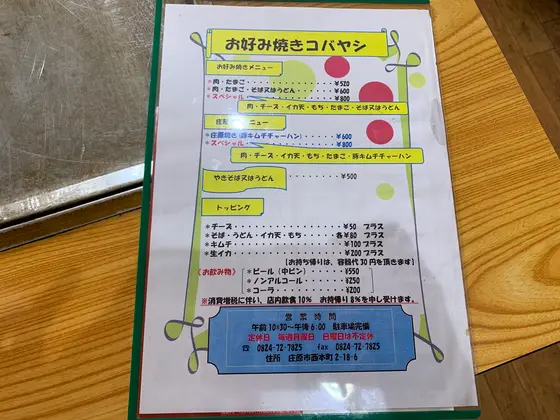 お好み焼きコバヤシ
お好み焼きメニュー
*肉・たまご・・・・・・・・・・・¥520
*肉・たまご・そば又はうどん・・・・・¥600
*スペシャル・・・・・・・・・・・¥800
肉・チーズ・イカ天・もち・たまご・そば又はうどん
庄原焼きメニュー
*庄原焼き(豚キムチチャーハン) ¥600
*スペシャル・・・・・・・・・・・¥800
肉・チーズ・イカ天・もち・たまご・豚キムチチャーハン
やきそば又はうどん・・・・・・・・・¥500
トッピング
*チーズ・・・・・・・・・・・・・¥50 プラス
*そば・うどん・イカ天・もち・・・・・各¥80 プラス
*キムチ・・・・・・・・・・・・・¥100 プラス
*生イカ・・・・・・・・・・・・・¥200 プラス
(お持ち帰りは、容器代30円を頂きます)
(お飲み物) *ビール(中ビン)・・・・¥550
*ノンアルコール・・・・¥250
*コーラ・・・・・・・¥200
※消費増税に伴い、店内飲食10% お持帰り8%を申し受けます。
営業時間
午前10:30〜午後6:00 駐車場完備
定休日 毎週月曜日 日曜日は不定休
☎ 0824-72-7825 fax 0824-72-7825
住所 庄原市西本町2-18-6